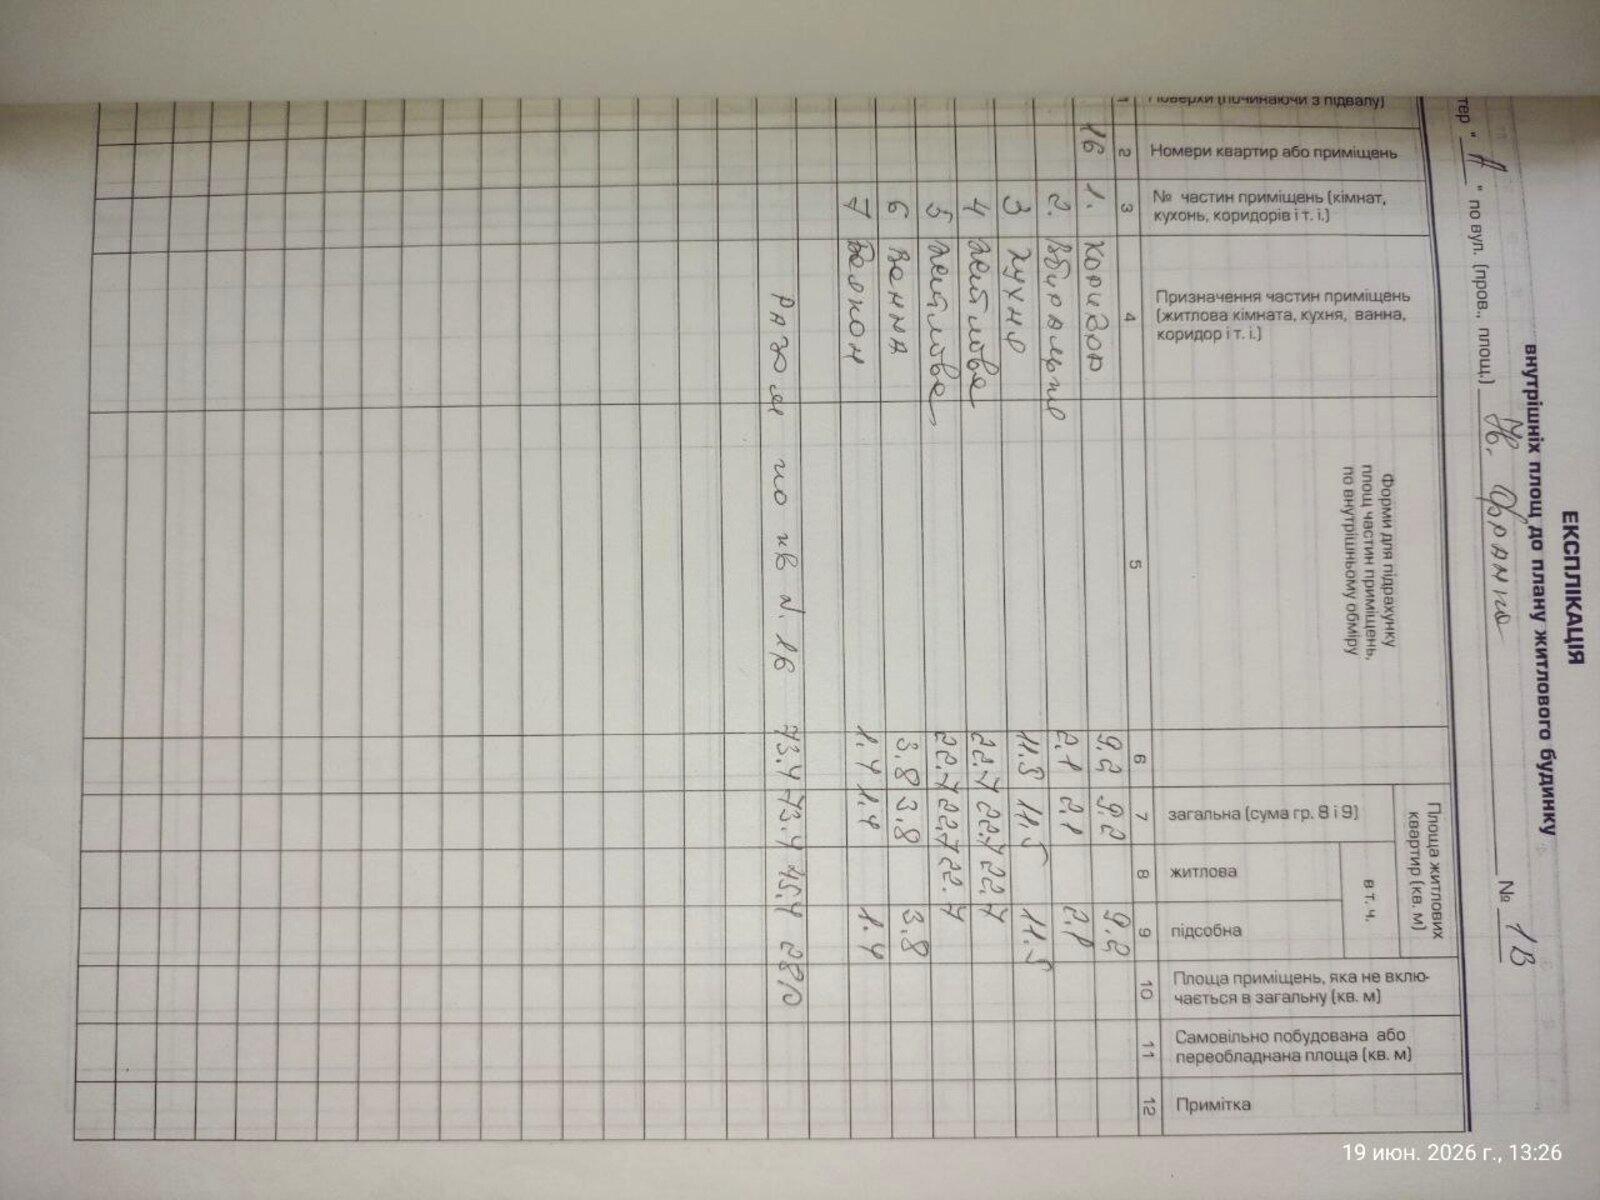 ЕКСПЛІКАЦІЯ
внутрішніх площ до плану житлового будинку
тер " А " по вул. (пров., площ.) Франка № 1В
Поверхи (починаючи з підвалу)
Номери квартир або приміщень
№ частин приміщень (кімнат, кухонь, коридорів і т. і.)
Призначення частин приміщень (житлова кімната, кухня, ванна, коридор і т. і.)
Форми для підрахунку площ частин приміщень, по внутрішньому обміру
Площа житлових квартир (кв. м)
загальна (сума гр. 8 і 9)
в т. ч.
житлова
підсобна
Площа приміщень, яка не вклю-
чається в загальну (кв. м)
Самовільно побудована або
переобладнана площа (кв. м)
Примітка
1 2 3 4 5 6 7 8 9 10 11 12
16 1. Коридор 9.2 9.2 9.2
2. Вбиральня 2.1 2.1 2.1
3 Кухня 11.5 11.5 11.5
4 Житлова 22.7 22.7 22.7
5 Житлова 22.7 22.7 22.7
6 Ванна 3.8 3.8 3.8
7 Балкон 1.4 1.4 1.4
Разом по кв N. 16 73.4 73.4 45.4 28,0
19 июн. 2026 г., 13:26